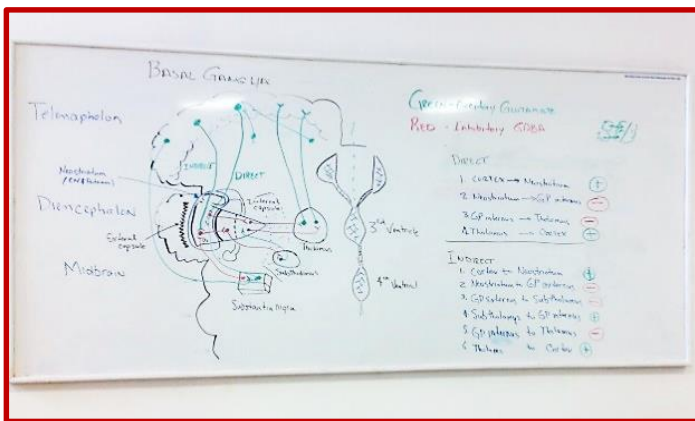 BASAL GANGLIA
Telencephalon
Diencephalon
Midbrain
Neostriatum
External
capsule
INDIRECT
DIRECT
Internal
capsule
Thalamus
Subthalamus
Substantia nigra
3rd Ventricle
4th
Ventricle
GREEN - Excitatory Glutamate
RED - Inhibitory GABA
DIRECT
1. CORTEX → Neostriatum +
2. Neostriatum → GP internus −
3. GP internus → Thalamus −
4. Thalamus → Cortex +
INDIRECT
1. Cortex to Neostriatum +
2. Neostriatum to GP externus −
3. GP externus to Subthalamus −
4. Subthalamus to GP internus +
5. GP internus to Thalamus −
6. Thalamus to Cortex +